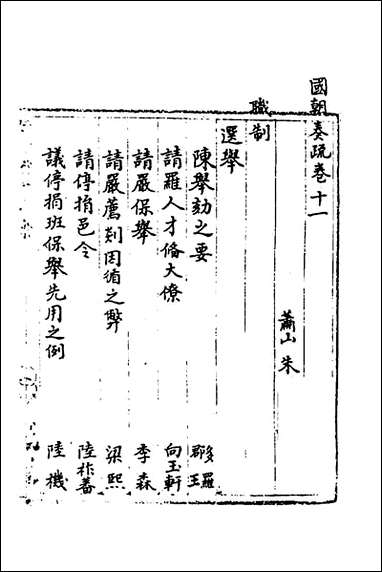 國朝奏疏卷十一
蕭山 朱
職制
選舉
陳舉劾之要 郡王羅
請羅人才備大僚 向玉軒
請嚴保舉 李森
請嚴薦剡因循之弊 梁熙
請停捐邑令 陸祚蕃
議停捐班保舉先用之例 陸機